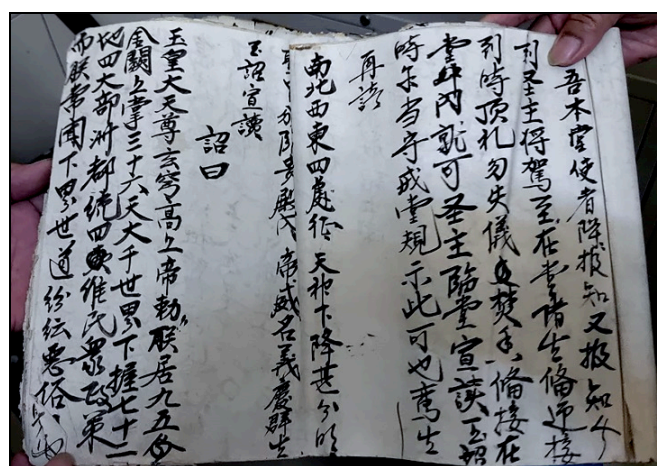 吾本堂使者降報知又報知今
到圣主将駕至在堂諸生俻迎接
到時頂礼勿失儀焚香俻接在
堂內就可圣主臨堂宣談玉詔
時尔当守戒堂規示此可也鸾生
再請
南北西東四處徑天神下降甚分明
分降臨殿內帝威名義慶群生
玉詔宣讀
詔曰
玉皇大天尊玄穹高上帝勅朕居九五
金闕上掌三十六天大千世界下握七十二
地四大部洲都統四維民衆政策
而朕常聞下界世道紛紜惡俗